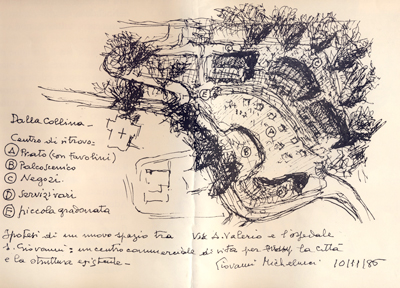 Dalla Collina -
Centro di ritrovo =
A Prato (con tavolini)
B Palcoscenico
C Negozi
D Servizi vari
E piccola gradonata
Ipotesi di un nuovo spazio tra Via A. Valerio e l'ospedale
S. Giovanni: un centro commerciale di vita per la città
e la struttura esistente -
Giovanni Michelucci 10/11/86